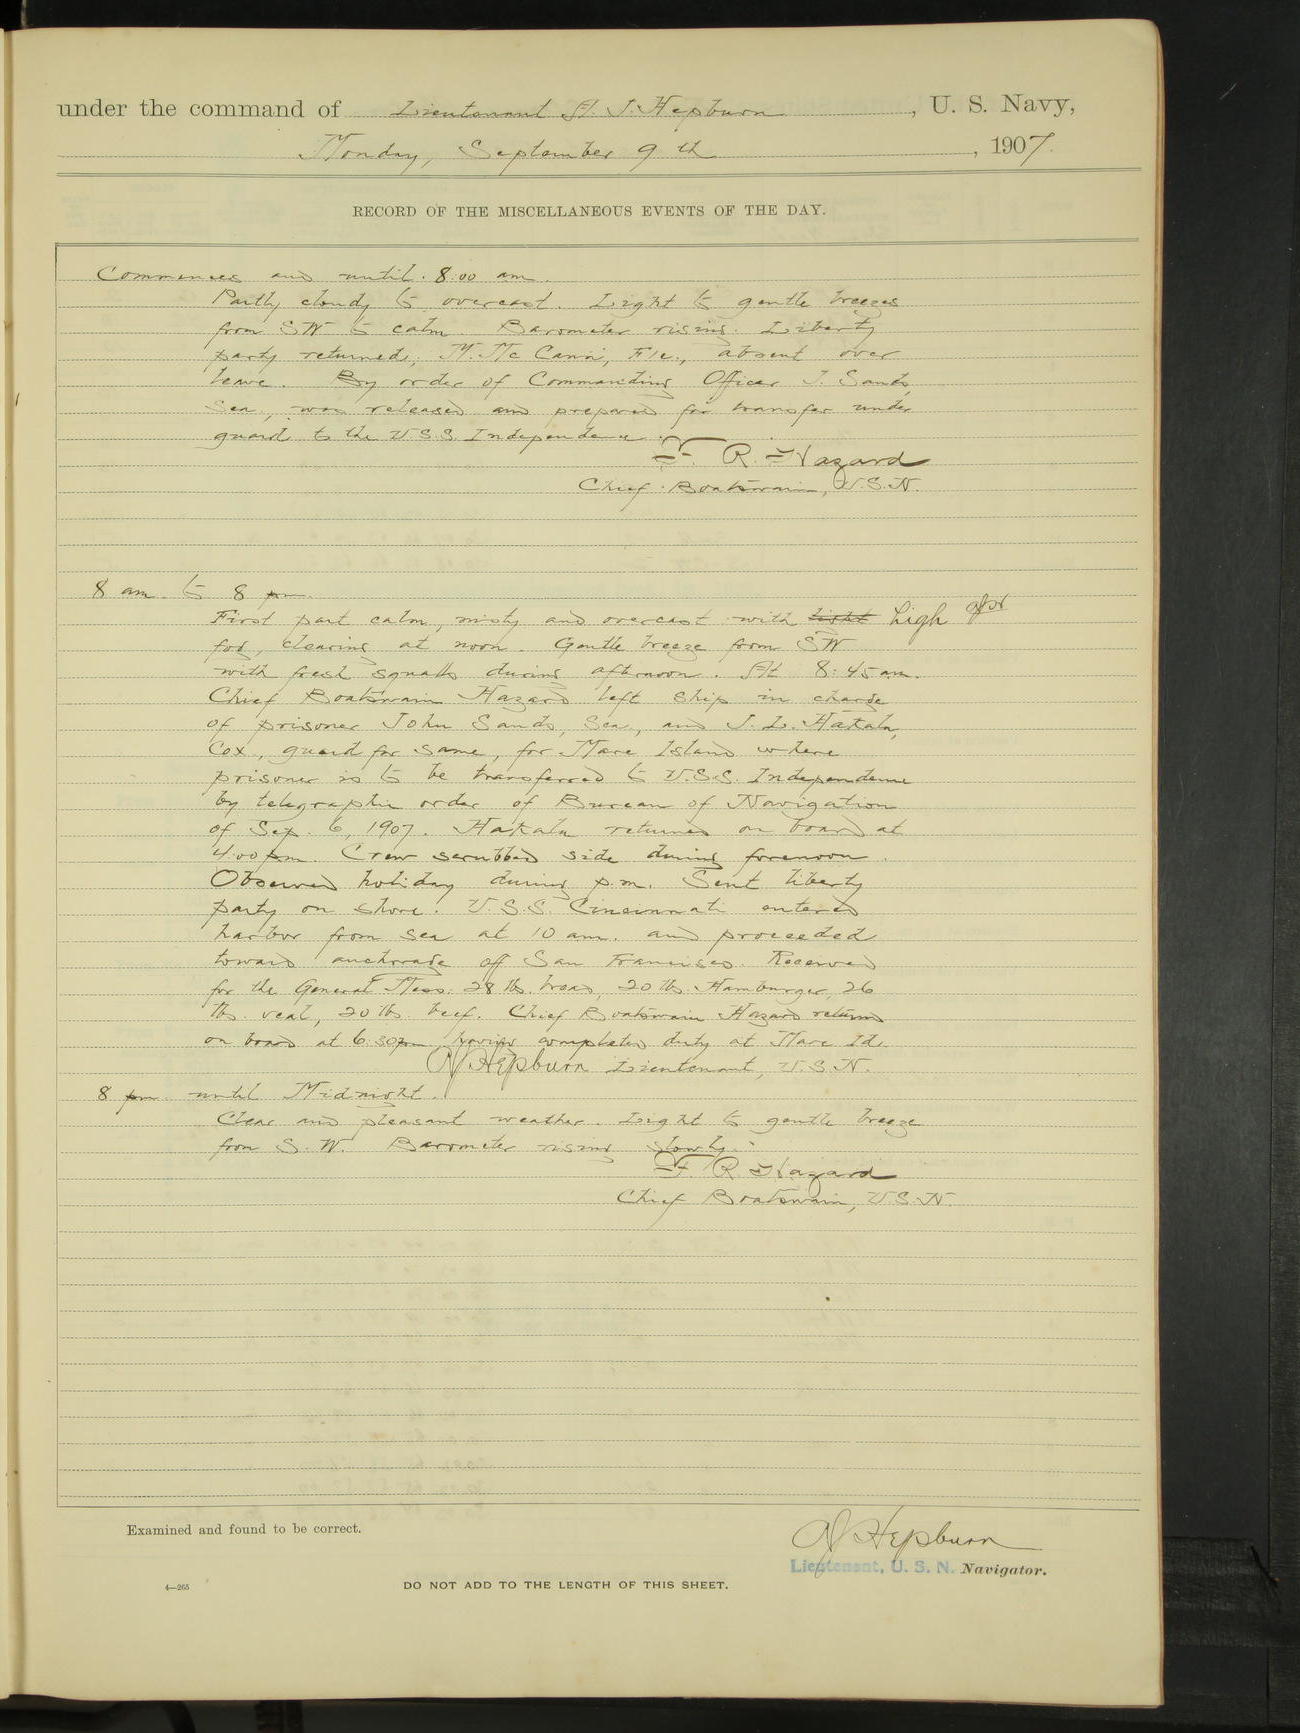 under the command of Lieutenant A. J. Hepburn, U. S. Navy,
Monday, September 9th, 1907.
RECORD OF THE MISCELLANEOUS EVENTS OF THE DAY.
Commences and until 8:00 am.
Partly cloudy to overcast. Light to gentle breezes
from SW to calm. Barometer rising. Liberty
party returned, M. Mc Cann, F1c., absent over
leave. By order of Commanding Officer J. Sands,
Sea., was released and prepared for transfer under
guard to the U.S.S. Independence.
F. R. Hazard
Chief Boatswain, U.S.N.
8 am to 8 pm.
First part calm, misty and overcast with light high
fog, clearing at noon. Gentle breeze from SW
with fresh squalls during afternoon. At 8:45 am.
Chief Boatswain Hazard left ship in charge
of prisoner John Sands, Sea., and J. L. Hakala,
Cox., guard for same, for Mare Island where
prisoner is to be transferred to U.S.S. Independence
by telegraphic order of Bureau of Navigation
of Sep. 6, 1907. Hakala returned on board at
4:00 pm. Crew scrubbed side during forenoon.
Observed holiday during p.m. Sent liberty
party on shore. U.S.S. Cincinnati entered
harbor from sea at 10 am. and proceeded
toward anchorage off San Francisco. Received
for the General Mess: 28 lbs. bread, 20 lbs. Hamburger, 26
lbs. veal, 20 lbs. beef. Chief Boatswain Hazard returned
on board at 6:30 pm, having completed duty at Mare Id.
AJ Hepburn Lieutenant, U.S.N.
8 pm until Midnight.
Clear and pleasant weather. Light to gentle breeze
from S.W. Barometer rising slowly.
F. R. Hazard
Chief Boatswain, U.S.N.
Examined and found to be correct.
AJ Hepburn
Lieutenant, U. S. N. Navigator.
4—265
DO NOT ADD TO THE LENGTH OF THIS SHEET.